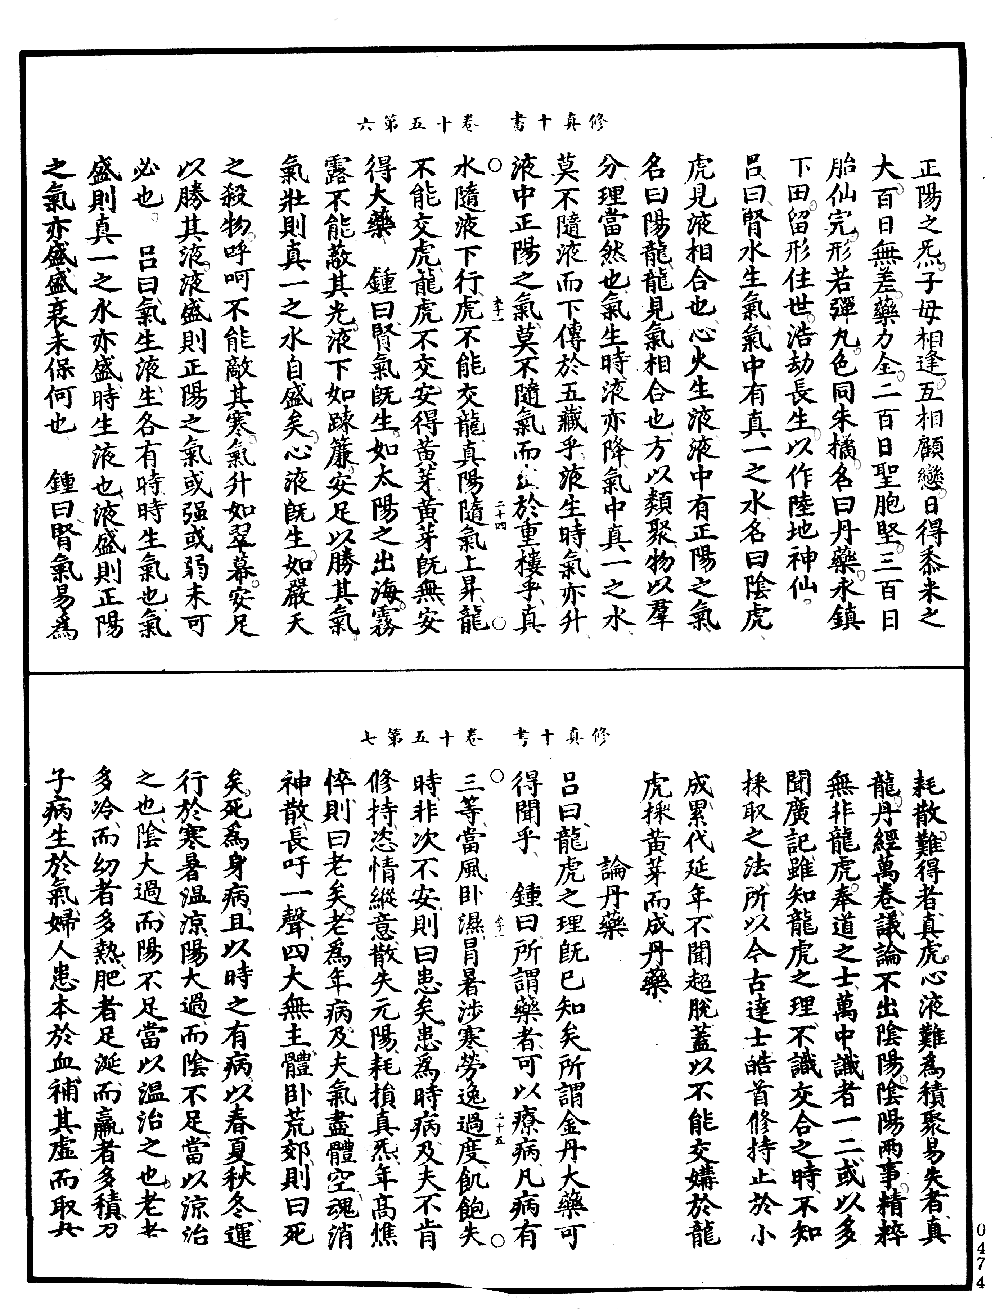 修真十書　卷十五第六
正陽之炁子母相逢互相顧戀日得黍米之
大百日無差藥力全二百日聖胞堅三百日
胎仙完形若彈丸色同朱橘名曰丹藥永鎮
下田留形住世浩劫長生以作陸地神仙
呂曰腎水生氣氣中有真一之水名曰陰虎
虎見液相合也心火生液液中有正陽之氣
名曰陽龍龍見氣相合也方以類聚物以羣
分理當然也氣生時液亦降氣中真一之水
莫不隨液而下傳於五藏乎液生時氣亦升
液中正陽之氣莫不隨氣而出於重樓乎真
水隨液下行虎不能交龍真陽隨氣上昇龍
不能交虎龍虎不交安得黃芽黃芽既無安
得大藥　鍾曰腎氣既生如太陽之出海霧
露不能蔽其光液下如踈簾安足以勝其氣
氣壯則真一之水自盛矣心液既生如嚴天
之殺物呼呵不能敵其寒氣升如翠幕安足
以勝其液液盛則正陽之氣或强或弱未可
必也　呂曰氣生液生各有時時生氣也氣
盛則真一之水亦盛時生液也液盛則正陽
之氣亦盛盛衰未保何也　鍾曰腎氣易為
二十四
修真十書　卷十五第七
耗散難得者真虎心液難為積聚易失者真
龍丹經萬卷議論不出陰陽陰陽兩事精粹
無非龍虎奉道之士萬中識者一二或以多
聞廣記雖知龍虎之理不識交合之時不知
採取之法所以今古達士皓首修持止於小
成累代延年不聞超脫蓋以不能交媾於龍
虎採黃芽而成丹藥
論丹藥
呂曰龍虎之理既已知矣所謂金丹大藥可
得聞乎　鍾曰所謂藥者可以療病凡病有
三等當風臥濕冒暑涉寒勞逸過度飢飽失
時非次不安則曰患矣患為時病及夫不肯
修持恣情縱意散失元陽耗損真炁年高憔
悴則曰老矣老為年病及夫氣盡體空魂消
神散長吁一聲四大無主體臥荒郊則曰死
矣死為身病且以時之有病以春夏秋冬運
行於寒暑溫涼陽大過而陰不足當以涼治
之也陰大過而陽不足當以溫治之也老者
多冷而幼者多熱肥者足涎而羸者多積男
子病生於氣婦人患本於血補其虛而取其
二十五
0474